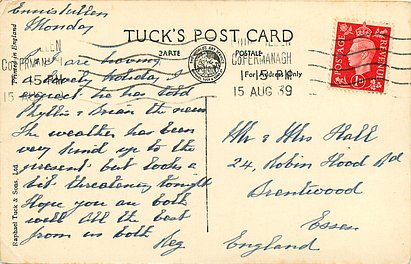 Enniskillen
Monday
We are having
a lovely holiday I
expect he has told
Phyllis & Brian the news
The weather has been
very kind up to the
present but looks a
bit threatening tonight
Hope you are both
well All the best
from us both
Reg
TUCK'S POST CARD
CARTE POSTALE
For Address Only
COFERMANAGH
15 AUG 39
COFERMANAGH
1 15 PM
15 AUG 39
POSTAGE
REVENUE
1D
Mr & Mrs Hall
24, Robin Hood Rd
Brentwood
Essex
England
Raphael Tuck & Sons, Ltd
in England